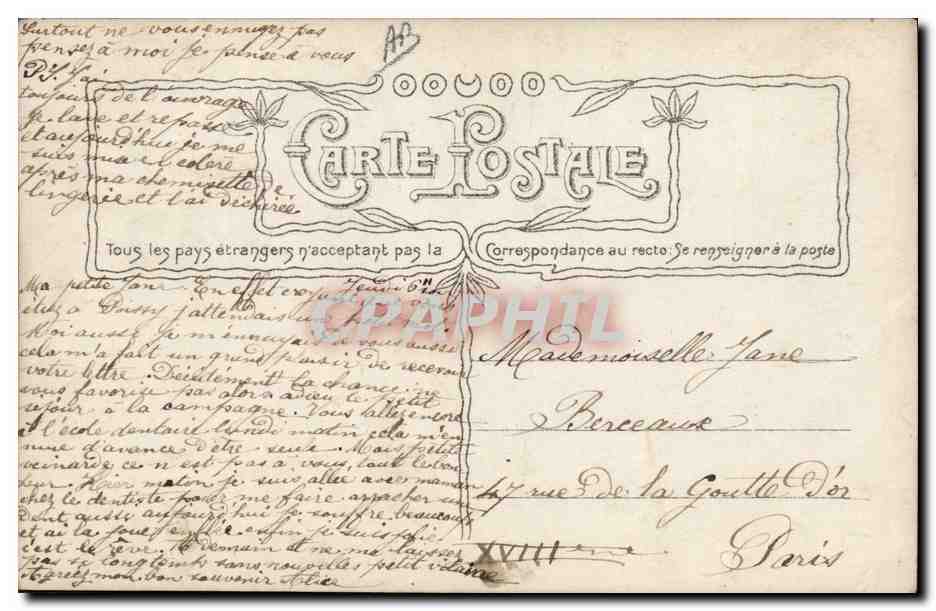 Surtout ne vous ennuyez pas
pensez à moi je pense à vous
PS. J'ai
toujours de l'ouvrage
je lave et repasse
et aujourd'hui je me
suis mise en colère
après ma chemisette de
lingerie et l'ai déchirée
AB
CARTE POSTALE
Tous les pays étrangers n'acceptant pas la Correspondance au recto: Se renseigner à la poste
Jeudi 6h
Ma petite Jane. En effet
étiez à Poissy j'attendais un
Moi aussi je m'ennuyais de vous aussi
cela m'a fait un grand plaisir de recevoir
votre lettre. Décidément la chance ne
vous favorise pas alors adieu le petit
séjour à la campagne. Vous allez encore
à l'école dentaire lundi matin cela m'en
nuie d'avance d'être seule. Mais petite
veinarde ce n'est pas à vous tout le bon
heur. Hier matin je suis allée avec maman
chez le dentiste pour me faire arracher une
dent aussi aujourd'hui je souffre beaucoup
et ai la joue enflée enfin je suis
c'est le rêve. À demain et ne me laissez
pas si longtemps sans nouvelles petit
mon bon souvenir Alice
Mademoiselle Jane
Berceaux
47 rue de la Goutte d'or
XVIIIème
Paris
CPAPHIL